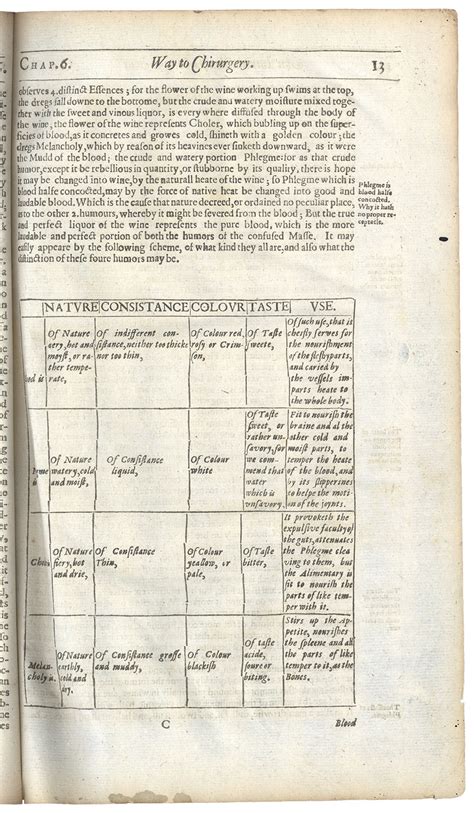 CHAP.6. Way to Chirurgery. 13
observes 4.distinct Essences; for the flower of the wine working up swims at the top,
the dregs fall downe to the bottome, but the crude and watery moisture mixed toge-
ther with the sweet and vinous liquor, is every where diffused through the body of
the wine; the flower of the wine represents Choler, which bubling up on the super-
ficies of blood, as it concretes and growes cold, shineth with a golden colour; the
dregs Melancholy, which by reason of its heavines ever sinketh downward, as it were
the Mudd of the blood; the crude and watery portion Phlegme: for as that crude
humor, except it be rebellious in quantity, or stubborne by its quality, there is hope
it may be changed into wine, by the naturall heate of the wine; so Phlegme which is
blood halfe concocted, may by the force of native heat be changed into good and
laudable blood. Which is the cause that nature decreed, or ordained no peculiar place,
as to the other 2. humours, whereby it might be severed from the blood: But the true
and perfect liquor of the wine represents the pure blood, which is the more
laudable and perfect portion of both the humors of the confused Masse. It may
easily appeare by the following scheme, of what kind they all are, and also what the
distinction of these foure humors may be.
Phlegme is
blood halfe
concocted.
Why it hath
no proper re-
ceptacle.
NATVRE CONSISTANCE COLOVR TASTE VSE.
is
Of Nature
aery, hot and
moyst, or ra-
ther tempe-
rate,
Of indifferent con-
sistance, neither too thicke
nor too thin,
Of Colour red,
rosy or Crim-
son,
Of Taste
sweete,
Of such use, that it
chiefly serves for
the nourishment
of the fleshy parts,
and caried by
the vessels im-
parts heate to
the whole body.
is
Of Nature
watery, cold
and moist,
Of Consistance
liquid,
Of Colour
white
Of Taste
sweet, or
rather un-
savory, for
we com-
mend that
water
which is
unsavory.
Fit to nourish the
braine and al the
other cold and
moist parts, to
temper the heate
of the blood, and
by its slipperines
to helpe the moti-
on of the joynts.
Of Nature
fiery, hot
and drie,
Of Consistance
Thin,
Of Colour
yeallow, or
pale,
Of Taste
bitter,
It provoketh the
expulsive faculty of
the guts, attenuates
the Phlegme clea
ving to them, but
the Alimentary is
fit to nourish the
parts of like tem
per with it.
Melan-
choly is
Of Nature
earthly,
cold and
dry.
Of Consistance grosse
and muddy,
Of Colour
blackish
Of taste
acide,
soure or
biting.
Stirs up the Ap-
petite, nourishes
the spleene and all
the parts of like
temper to it, as the
Bones.
C Blood